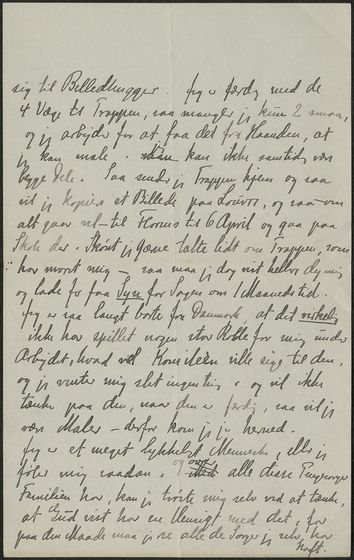 sig til Billedhugger. Jeg er færdig med de
4 Vægge til Trappen, saa mangler jeg kun 2 smaa,
og jeg arbejder for at faa det fra Haanden, at
jeg kan male. kan ikke samtidig være
begge dele. Saa sender jeg Trappen hjem og saa
vil jeg kopiere et Billede paa Louvre, og saa om
alt gaar vel til Florens til 6 April og gaa paa
Skole der. Skønt jeg gærne talte lidt om Trappen, som
har moret mig – saa maa jeg dog vist hellere tie
og lade for faa Syn for Sagen om 1 Maanedstid.
Jeg er saa langt borte fra Danmark, at det virkelig
ikke har spillet nogen stor Rolle for mig under
Arbejdet, hvad vel Komiteen ville sige til den,
og jeg venter mig slet ingenting. og vil ikke
tænke paa den, naar den er færdig, saa vil jeg
være Maler – derfor kom jeg jo herned.
Jeg er et meget lykkeligt Menneske, eller jeg
føler mig saadan. og over alle disse
Familien har, kan jeg trøste mig selv ved at tænke,
at Gud vist har en Mening med det, for
paa den Maade maa jeg se alle de Sorger jeg selv har
haft.